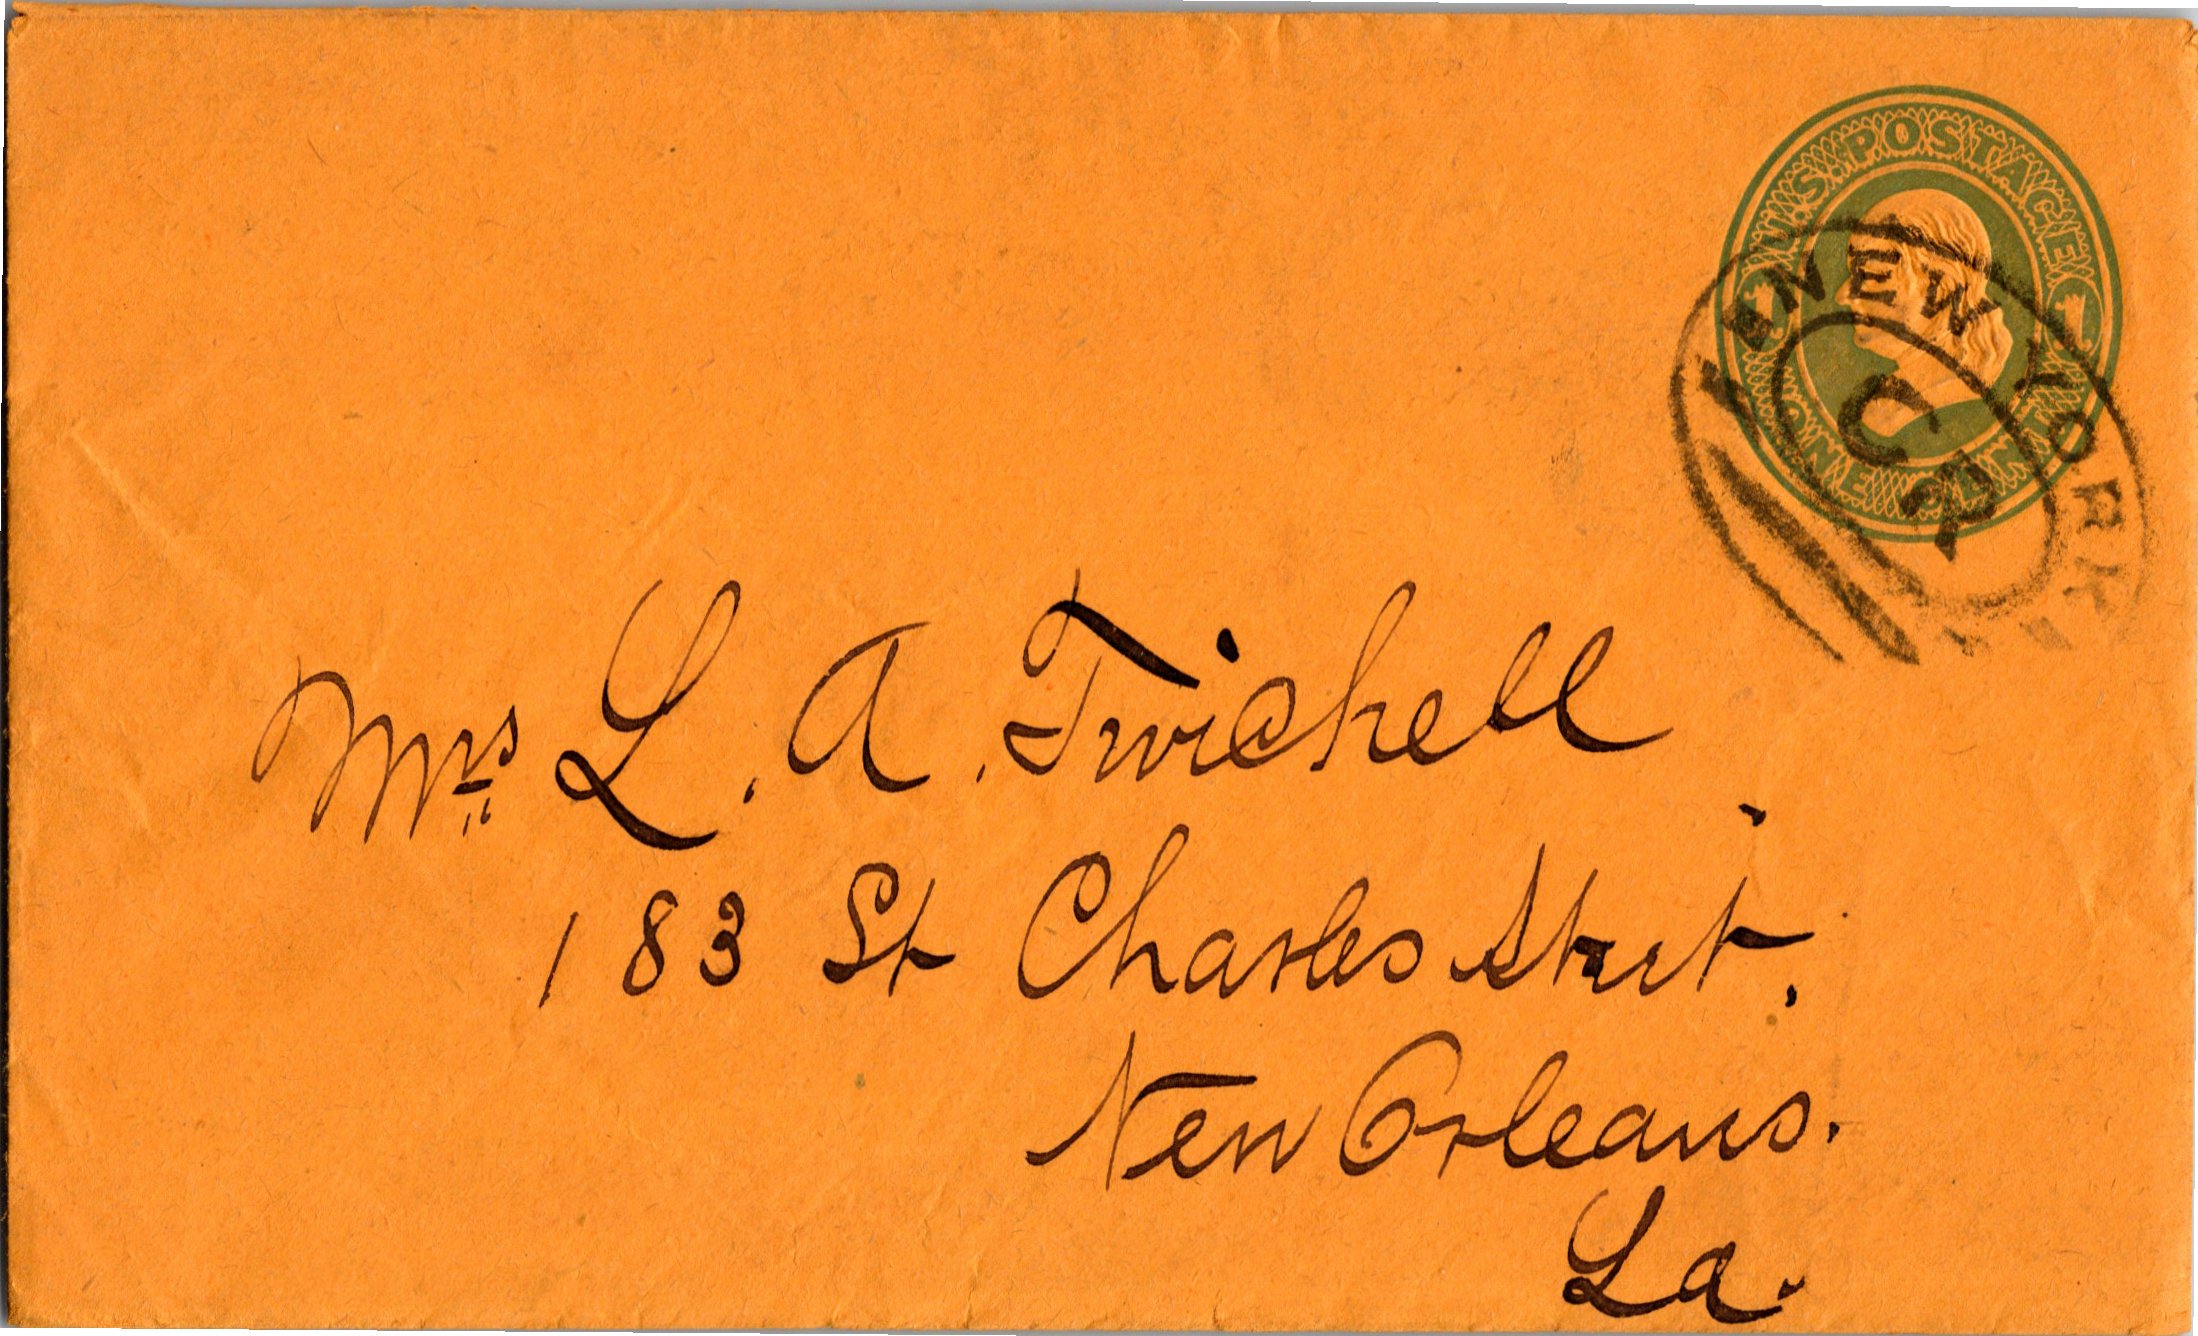 U.S. POSTAGE
1 1
ONE CENT
NEW YORK
C
2
Mrs L. A. Twichell
183 St Charles Street.
New Orleans.
La.